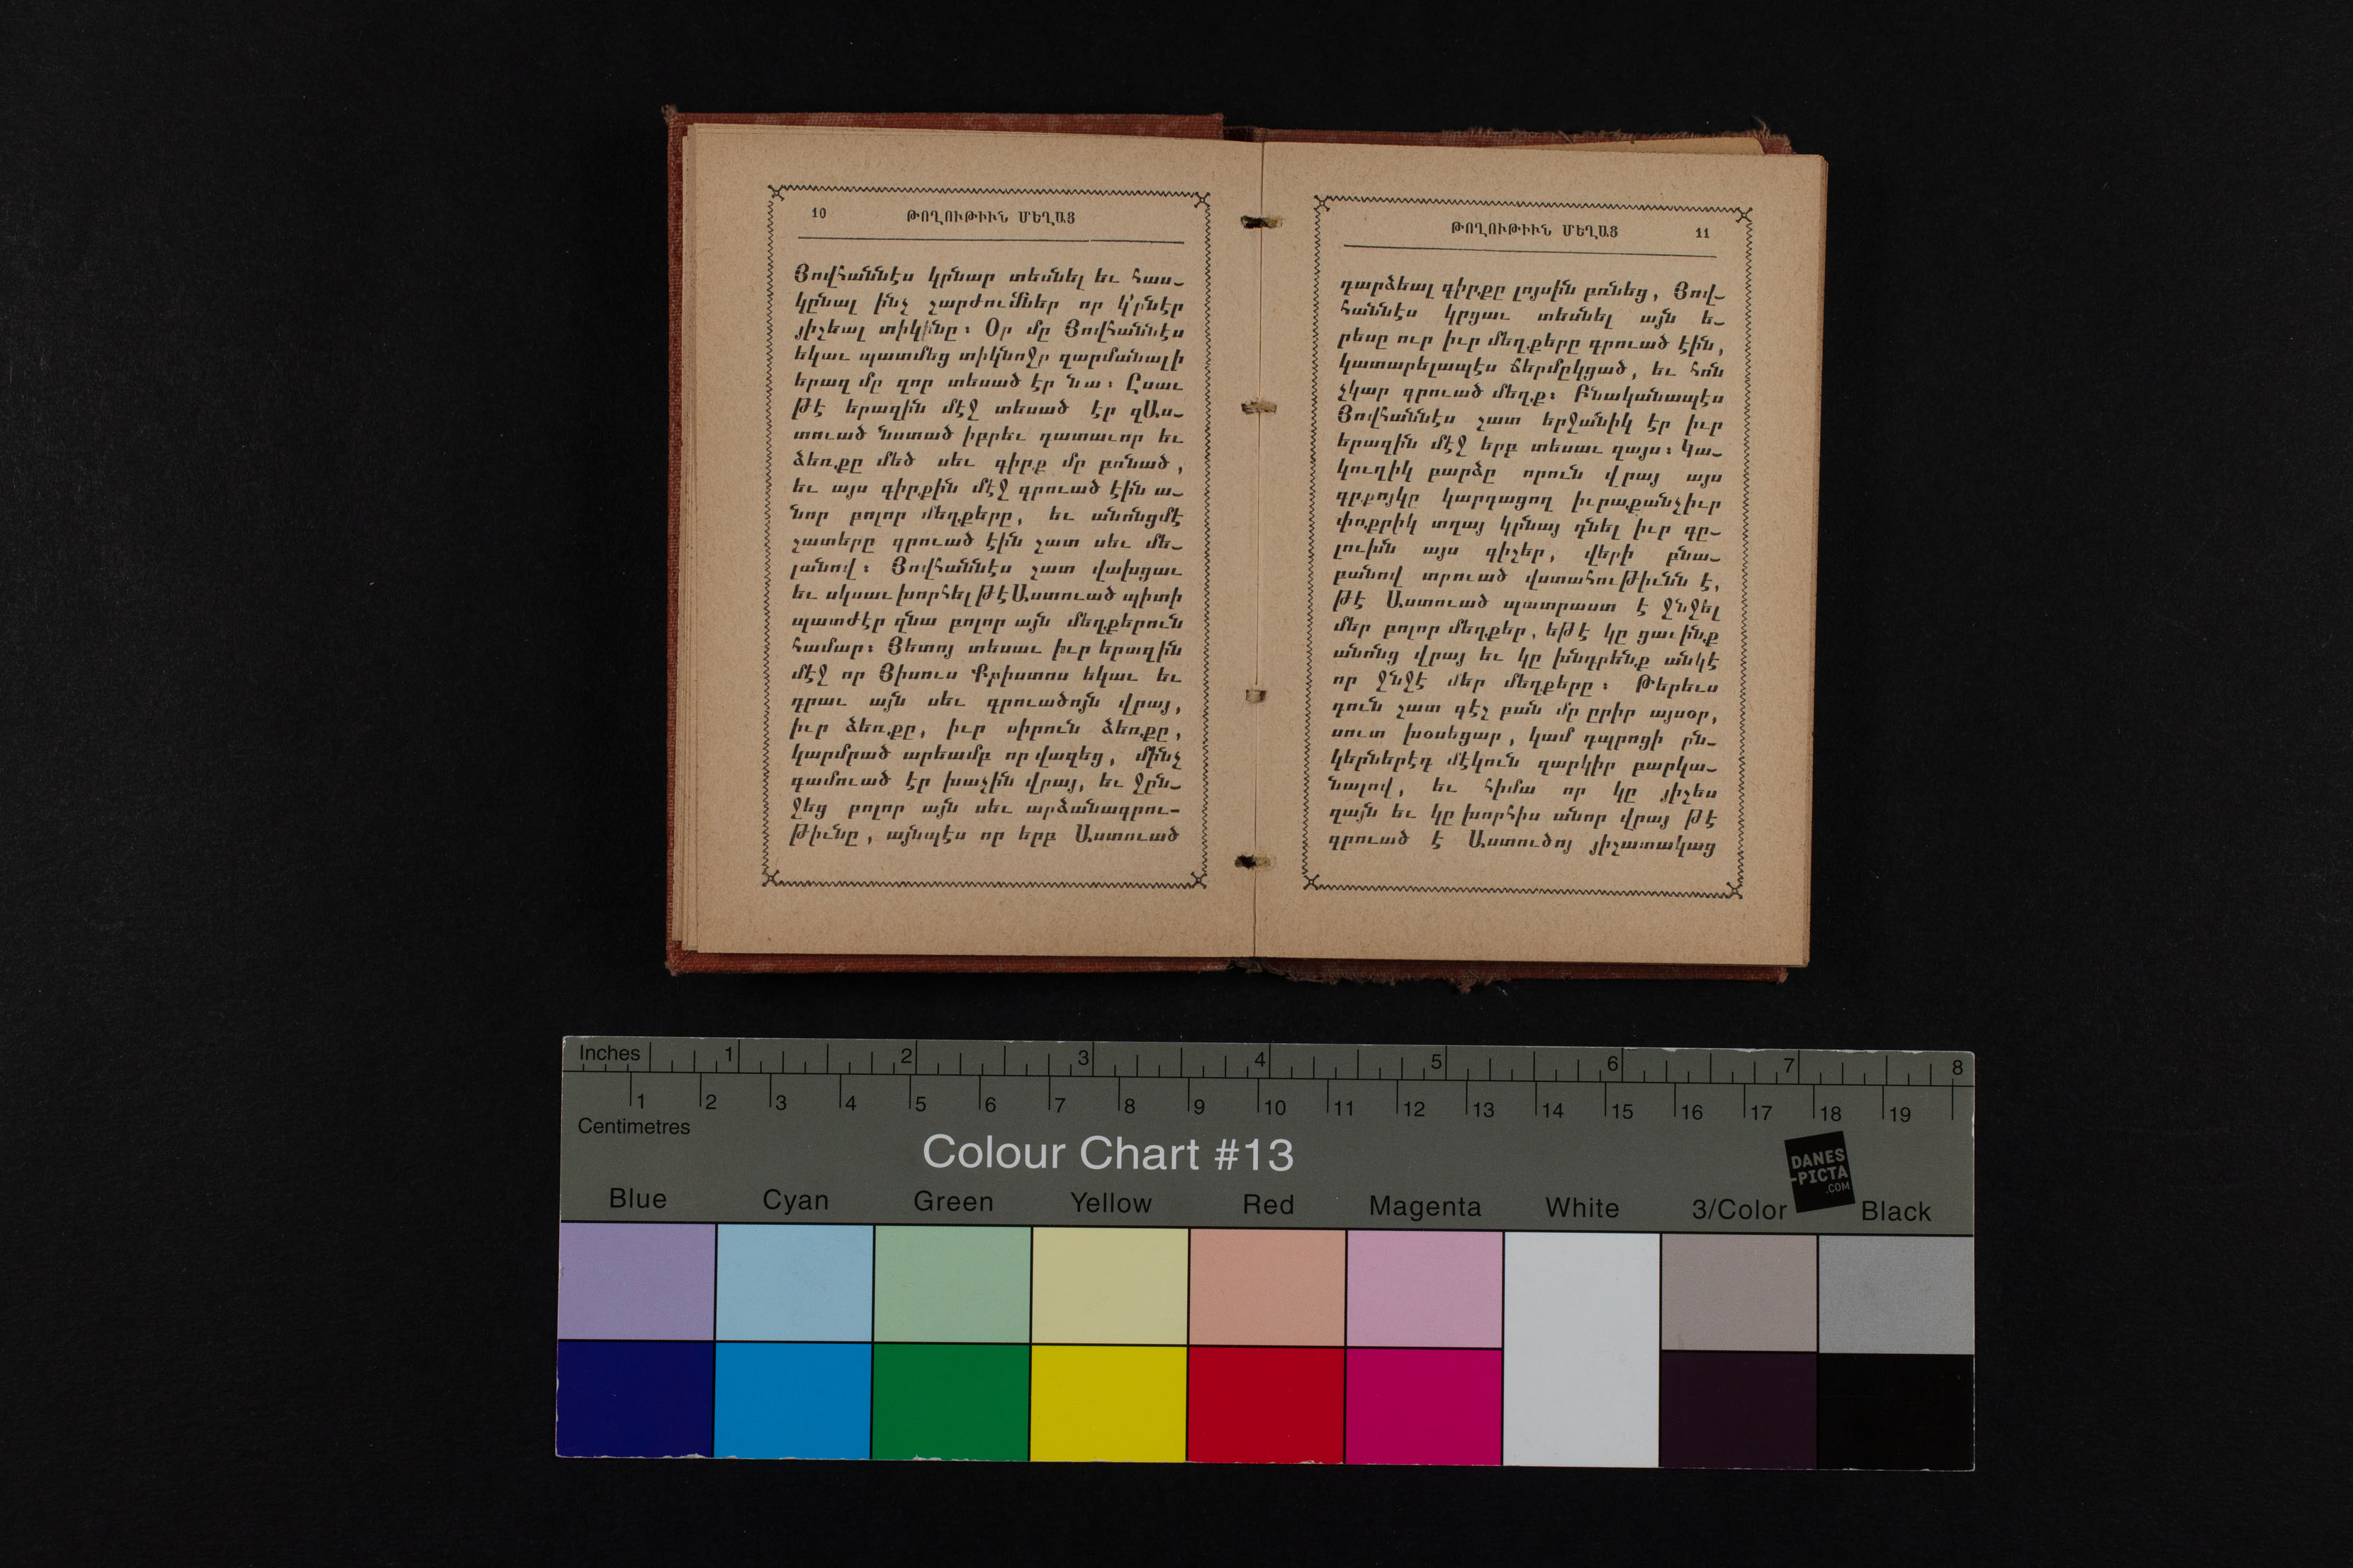 10 ԹՈՂՈՒԹԻՒՆ ՄԵՂԱՑ
Յովհաննէս կրնար տեսնել եւ հաս-
կընալ ինչ շարժումներ որ կ՚ընէր
յիշեալ տիկինը։ Օր մը Յովհաննէս
եկաւ պատմեց տիկնոջը զարմանալի
երազ մը զոր տեսած էր նա։ Ըսաւ
թէ երազին մէջ տեսած էր զԱս-
տուած նստած իբրեւ դատաւոր եւ
ձեռքը մեծ սեւ գիրք մը բռնած,
եւ այս գիրքին մէջ գրուած էին ա-
նոր բոլոր մեղքերը, եւ անոնցմէ
շատերը գրուած էին շատ սեւ մե-
լանով։ Յովհաննէս շատ վախցաւ
եւ սկսաւ խորհել թէ Աստուած պիտի
պատժէր զնա բոլոր այն մեղքերուն
համար։ Յետոյ տեսաւ իւր երազին
մէջ որ Յիսուս Քրիստոս եկաւ եւ
դրաւ այն սեւ գրուածոյն վրայ,
իւր ձեռքը, իւր սիրուն ձեռքը,
կարմրած արեամբ որ վազեց, մինչ
գամուած էր խաչին վրայ, եւ ջըն-
ջեց բոլոր այն սեւ արձանագրու-
թիւնը, այնպէս որ երբ Աստուած
ԹՈՂՈՒԹԻՒՆ ՄԵՂԱՑ 11
դարձեալ գիրքը լոյսին բռնեց, Յով-
հաննէս կրցաւ տեսնել այն ե-
րեսը ուր իւր մեղքերը գրուած էին,
կատարելապէս ճերմըկցած, եւ հոն
չկար գրուած մեղք։ Բնականապէս
Յովհաննէս շատ երջանիկ էր իւր
երազին մէջ երբ տեսաւ զայս։ Կա-
կուղիկ բարձը որուն վրայ այս
գրքոյկը կարդացող իւրաքանչիւր
փոքրիկ տղայ կրնայ դնել իւր գը-
լուխն այս գիշեր, վերի բնա-
բանով տրուած վստահութիւնն է,
թէ Աստուած պատրաստ է ջնջել
մեր բոլոր մեղքեր, եթէ կը ցաւինք
անոնց վրայ եւ կը խնդրենք անկէ
որ ջնջէ մեր մեղքերը։ Թերեւս
դուն շատ գէշ բան մը ըրիր այսօր,
սուտ խօսեցար, կամ դպրոցի ըն-
կերներէդ մէկուն զարկիր բարկա-
նալով, եւ հիմա որ կը յիշես
զայն եւ կը խորհիս անոր վրայ թէ
գրուած է Աստուծոյ յիշատակաց
Inches 1 2 3 4 5 6 7 8
1 2 3 4 5 6 7 8 9 10 11 12 13 14 15 16 17 18 19
Centimetres
Colour Chart #13
DANES
-PICTA
.COM
Blue Cyan Green Yellow Red Magenta White 3/Color Black